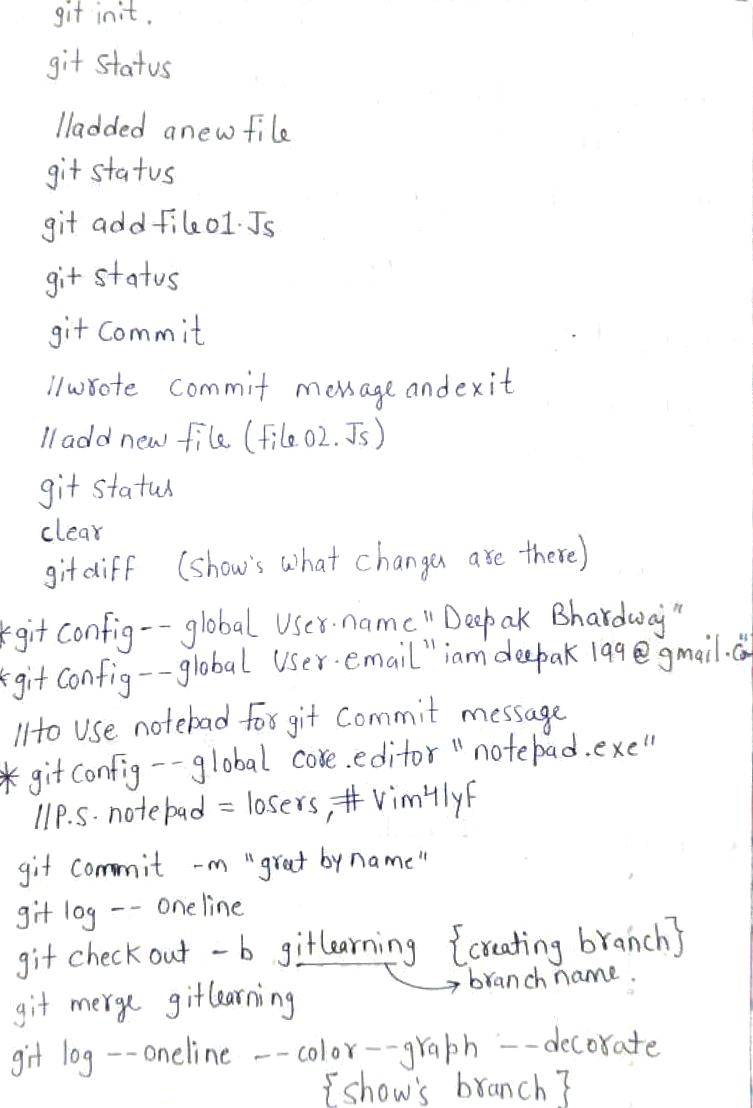 git init.
git status
//added a new file
git status
git add file01.Js
git status
git commit
//wrote commit message and exit
//add new file (file02.Js)
git status
clear
git diff (show's what changes are there)
*git config -- global user.name "Deepak Bhardwaj"
*git config -- global user.email "iamdeepak199@gmail.co"
//to use notebad for git commit message
* git config -- global core.editor "notepad.exe"
//P.S. notepad = losers, # Vim4lyf
git commit -m "greet by name"
git log -- oneline
git checkout -b gitlearning {creating branch}
branch name.
git merge gitlearning
git log --oneline --color --graph --decorate
{show's branch}